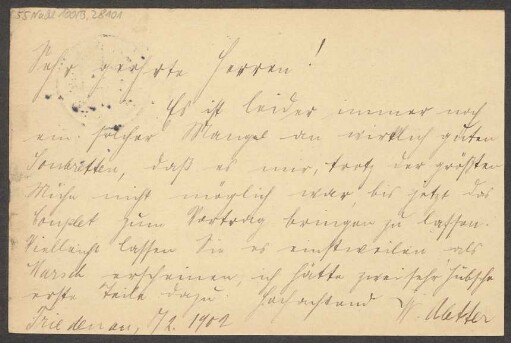 55 Nachl 100/B, 28101
Sehr geehrte Herren!
Es ist leider immer noch
ein solcher Mangel an wirklich guten
Soubretten, daß es mir, trotz der größten
Mühe nicht möglich war, bis jetzt das
Couplet zum Vortrag bringen zu lassen.
Vielleicht lassen Sie es einstweilen als
Marsch erscheinen, ich hätte zwei sehr hübsche
erste Teile dazu. Hochachtend W.
Friedenau, 7/2. 1902